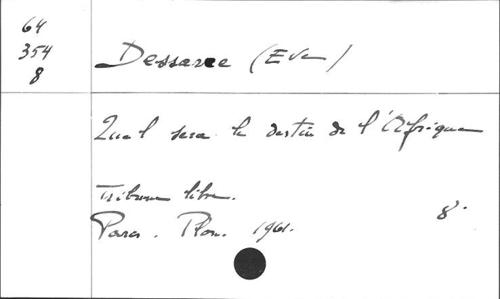 64
354
8
Dessarre (Eve)
Quel sera le destin de l'Afrique
Tribune libre.
Paris. Plon. 1961.
8°.